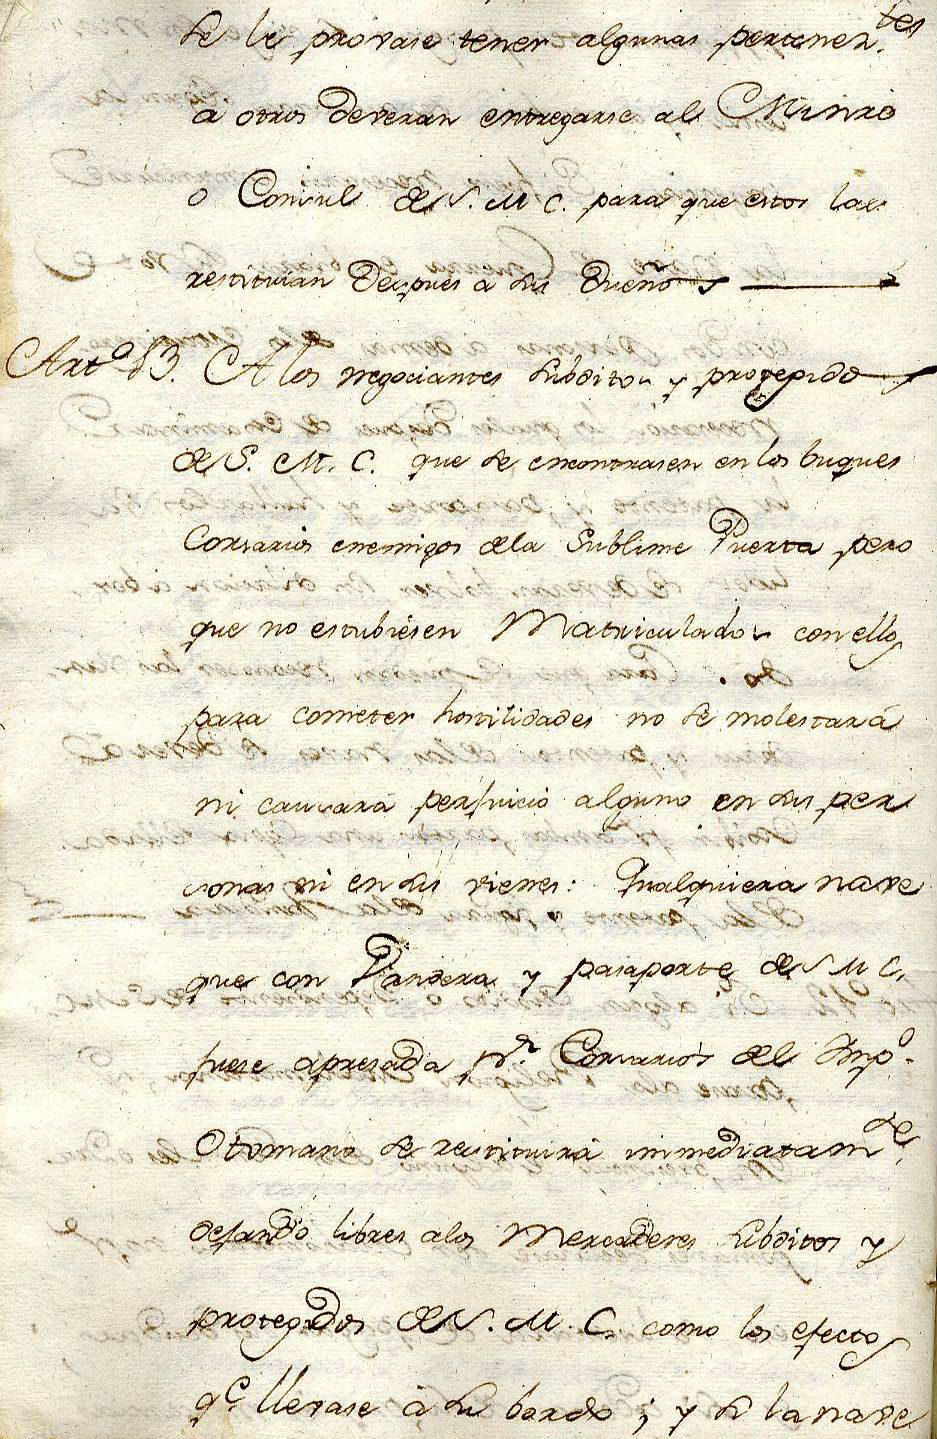 se le provase tener algunas pertenen.tes
a otros deveran entregarse al Minro
o Consul de S. M. C. para que estos las
restituian despues a sus dueños
Arto 13. A los negociantes subditos y protegidos
de S. M. C. que se encontrasen en los buques
Corsarios enemigos dela Sublime Puerta pero
que no estubiesen Matriculados con ellos
para cometer hostilidades no se molestará
ni causará perjuicio alguno en sus per
sonas ni en sus vienes: Qualquiera nave
que con Vandera y pasaporte de S M C.
fuese apresada pr Corsarios del Impo.
Otomano se restituirá immediatamte.
dejando libres alos Mercaderes subditos y
protegidos de S. M. C. como los efectos
qe. llevase à su bordo; y si la nave